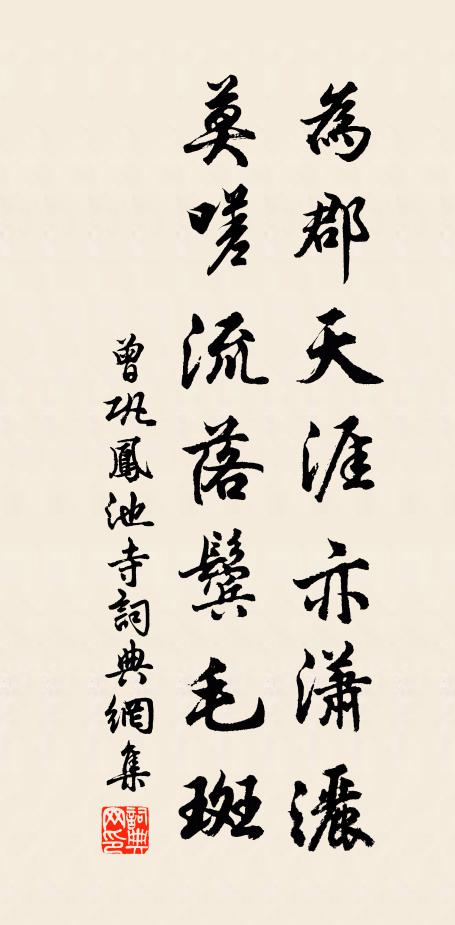 為郡天涯亦瀟灑
莫嗟流落鬢毛斑
曾鞏鳳池寺詞典網集
詞典網印